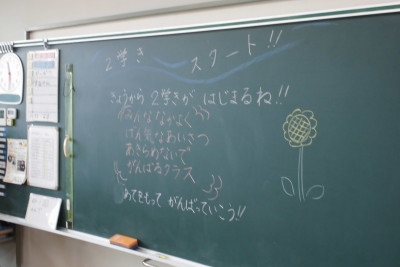 2学き スタート!!
きょうから 2学きが、はじまるね!!
みんななかよく
げん気なあいさつ
あきらめないで
がんばるクラス
めあてをもって がんばっていこう!!